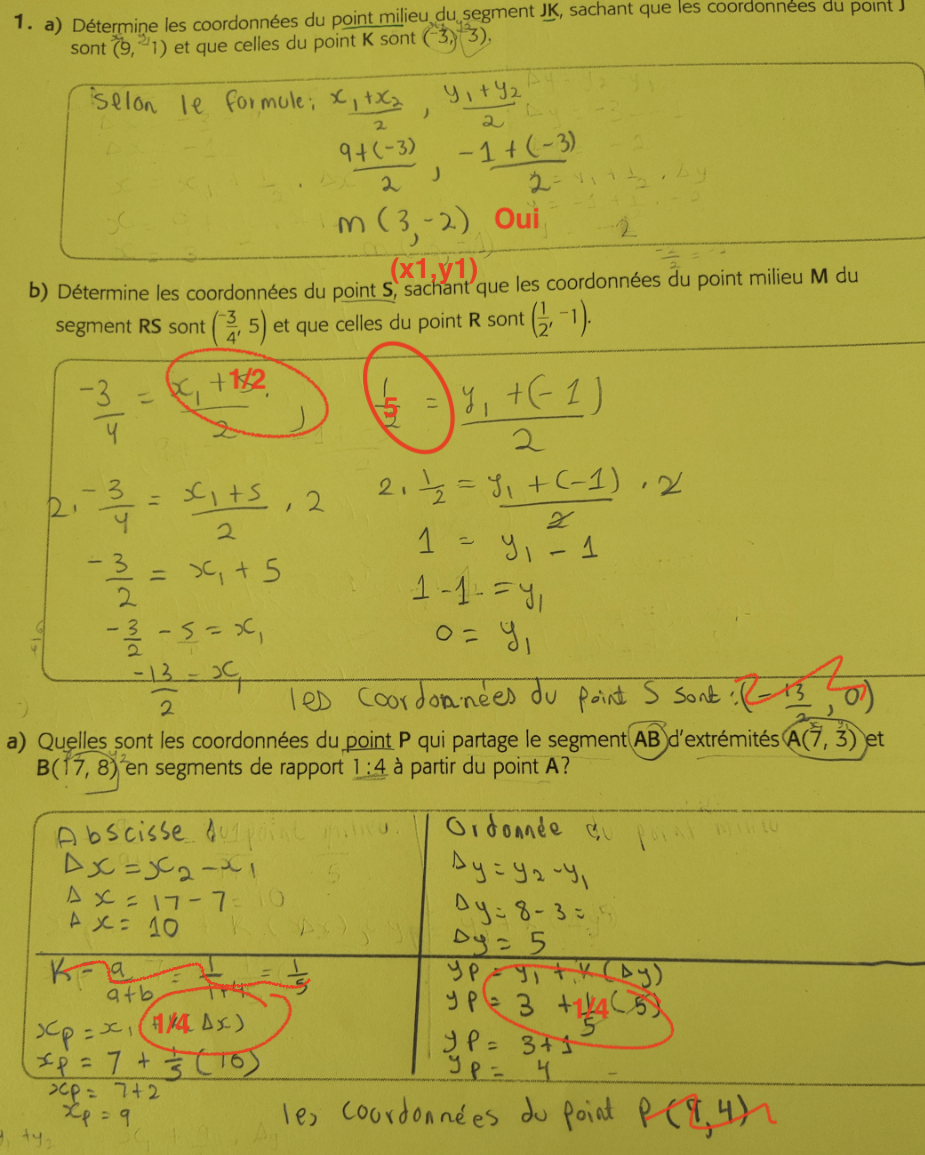 1. a) Détermine les coordonnées du point milieu du segment JK, sachant que les coordonnées du point J
sont (9, ⁻1) et que celles du point K sont (⁻3, ⁻3).
Selon le formule: x₁+x₂/2 , y₁+y₂/2
9+(-3)/2 , -1+(-3)/2
m(3,-2) Oui
(x1,y1)
b) Détermine les coordonnées du point S, sachant que les coordonnées du point milieu M du
segment RS sont (⁻3/4, 5) et que celles du point R sont (1/2, ⁻1).
-3/4 = x₁ + 1/2 / 2 , 5 = y₁ + (-1)/2
2. -3/4 = x₁+5/2 . 2 2. 1/2 = y₁+(-1)/2 . 2
-3/2 = x₁ + 5 1 = y₁ - 1
-3/2 - 5 = x₁ 1-1 = y₁
-13/2 = x₁ 0 = y₁
les coordonnées du point S sont : (-13/2, 0)
a) Quelles sont les coordonnées du point P qui partage le segment AB d'extrémités A(7, 3) et
B(17, 8) en segments de rapport 1:4 à partir du point A?
Abscisse du point milieu Ordonnée du point milieu
Δx = x₂ - x₁ Δy = y₂ - y₁
Δx = 17 - 7 Δy = 8 - 3 =
Δx = 10 Δy = 5
K = a/a+b = 1/1+4 = 1/5 yp = y₁ + K(Δy)
xp = x₁ + 1/4 (Δx) yp = 3 + 1/4 (5)
xp = 7 + 1/5 (10) yp = 3+1
xp = 7+2 yp = 4
xp = 9
les coordonnées du point P(9,4)